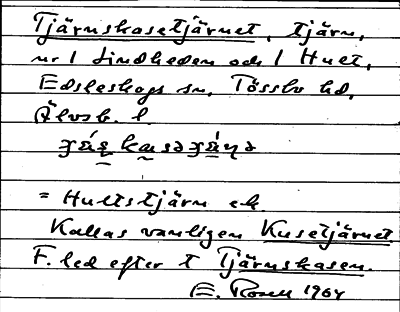 Tjärnskasetjärnet, tjärn,
nr 1 Lindheden och 1 Hult,
Edsleskogs sn, Tösslv hd,
Älvsb. l.
= Hultstjärn ek.
Kallas vanligen Kusetjärnet
F. led efter t Tjärnskasen.
E. Rosell 1964